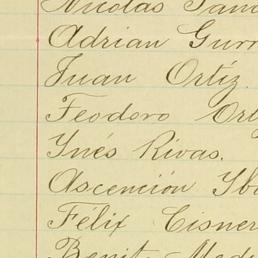 Nicolas
Adrian Gurr
Juan Ortíz.
Feodoro Ort
Ynés Rivas.
Ascención Yb
Félix Cisner
Benit Medi